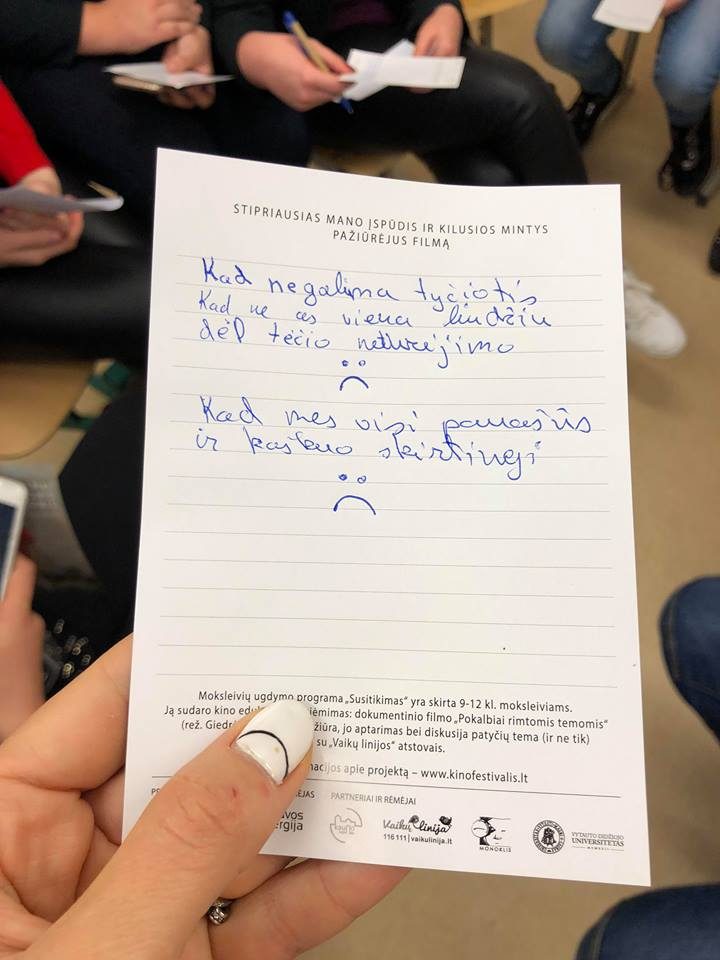 STIPRIAUSIAS MANO ĮSPŪDIS IR KILUSIOS MINTYS
PAŽIŪRĖJUS FILMĄ
Kad negalima tyčiotis
Kad ne aš viena liudžiu
dėl tėčio neturėjimo
Kad mes visi panašūs
ir kažkuo skirtingi
Moksleivių ugdymo programa „Susitikimas“ yra skirta 9-12 kl. moksleiviams.
Ją sudaro kino ėmimas: dokumentinio filmo „Pokalbiai rimtomis temomis“
(rež. žiūra, jo aptarimas bei diskusija patyčių tema (ir ne tik)
su „Vaikų linijos“ atstovais.
macijos apie projektą – www.kinofestivalis.lt
PARTNERIAI IR RĖMĖJAI
Vaikų linija
116 111 | vaikulinija.lt
MONOKLIS
VYTAUTO DIDŽIOJO
UNIVERSITETAS